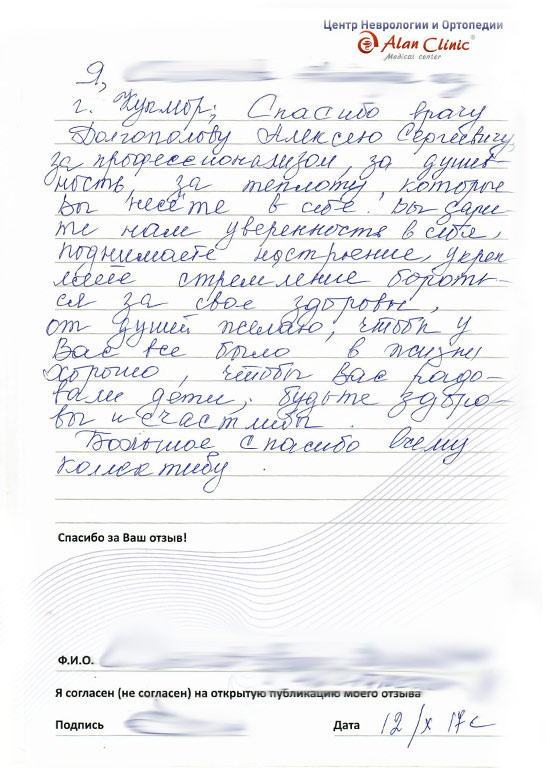 Центр Неврологии и Ортопедии
Alan Clinic®
Medical center
Я,
г. Кукмор; Спасибо врачу
Долгополову Алексею Сергеевичу,
за профессионализм, за душев-
ность, за теплоту, которые
Вы несёте в себе. Вы дари-
те нам уверенность в себя,
поднимаете настроение, укреп
ляете стремление бороть-
ся за свое здоровье,
от души желаю, чтобы у
Вас все было в жизни
хорошо, чтобы Вас радо-
вали дети, будьте здоро-
вы и счастливы.
Большое спасибо всему
коллективу.
Спасибо за Ваш отзыв!
Ф.И.О.
Я согласен (не согласен) на открытую публикацию моего отзыва
Подпись Дата 12/x 17г